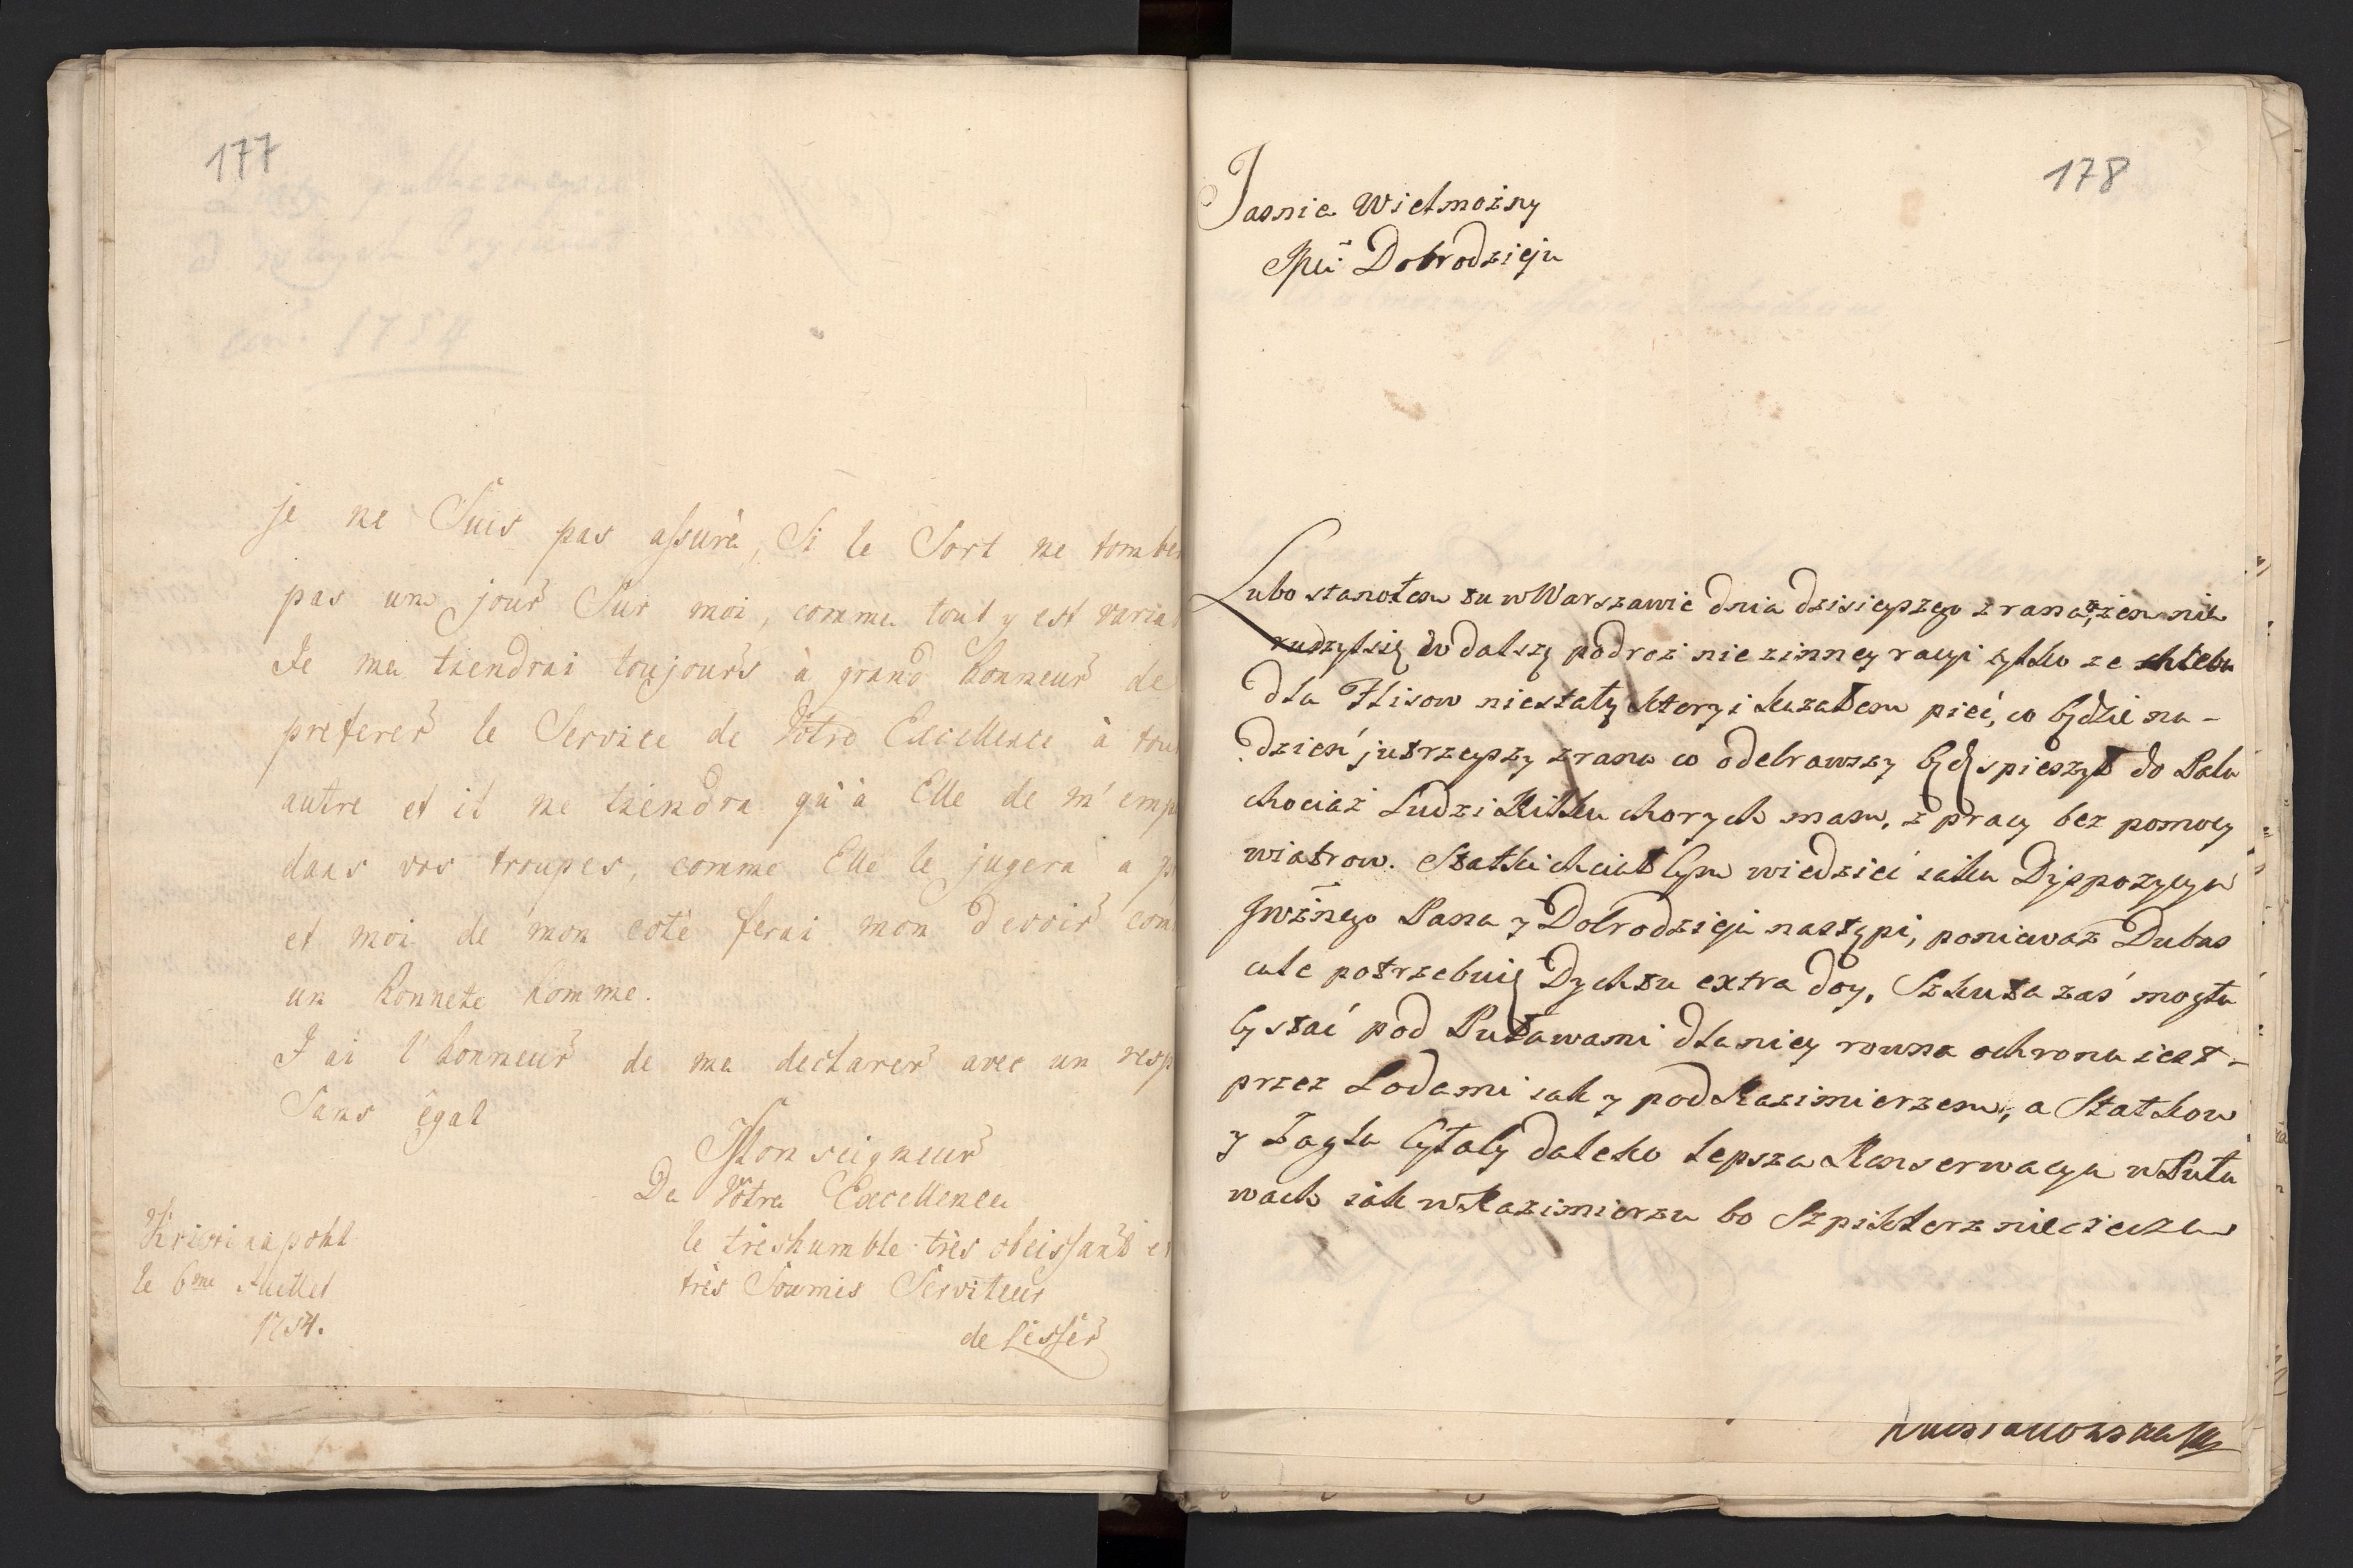 177
je ne Suis pas assuré, Si le Sort ne tomber
pas un jour Sur moi, comme tout y est varia
Je me tiendrai toujours à grand honneur de
preferer le Service de Vôtre Excellence à tout
autre et il ne tiendra qu'à Elle de m'emp
dans vos troupes, comme Elle le jugera a p
et moi de mon coté ferai mon devoir com
un honnete homme.
J'ai l'honneur de me declarer avec un resp
Sans égal
Monseigneur
De Vôtre Excellence
le tréshumble très obeissant et
très Soumis Serviteur
de Lesser
le 6me Juillet
1754.
178
Jasnie Wielmożny
Dobrodzieju
Lubo stanołem tu w Warszawie dnia dzisieyszego z rana, żem nie
ruszył się w dalszą podroż nie z inney racyi tylko ze chleba
dla Flisow niestało ktory i kazałem piec, co będzie na-
dzień jutrzeyszy z rana co odebrawszy będę spieszył do Pulu
chociaż Ludzi kilku chorych mam, z pracy bez pomocy
wiatrow. Statki chciałbym wiedzieć iaka Dyspozycya
Jwżnego Pana y Dobrodzieja nastąpi, poniewaz Dubas
cale potrzebuię Dychtu extra doy, Szkuta zaś mogła
by stać pod Puławami dla niey rowna ochrona iest-
przez Lodami iak y pod Kazimierzem, a Statkow
y Zagla byłaby daleko lepsza Konserwacya w Puła
wach iak w Kazimierzu bo Szpiklerz nie ciecze